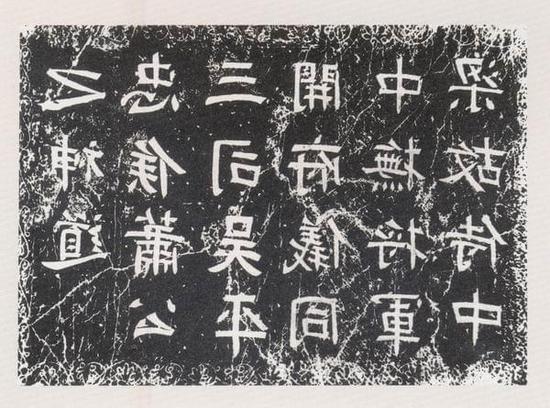 梁故侍中
中撫将軍
開府儀同
三司吴平
忠侯蕭公
之神道